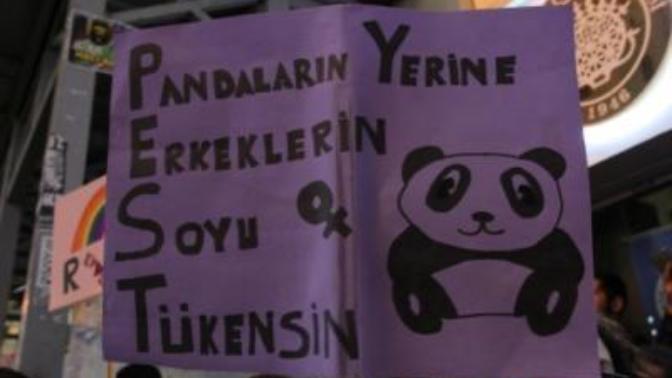 PANDALARIN YERİNE
ERKEKLERİN
SOYU
TÜKENSİN
1946
R